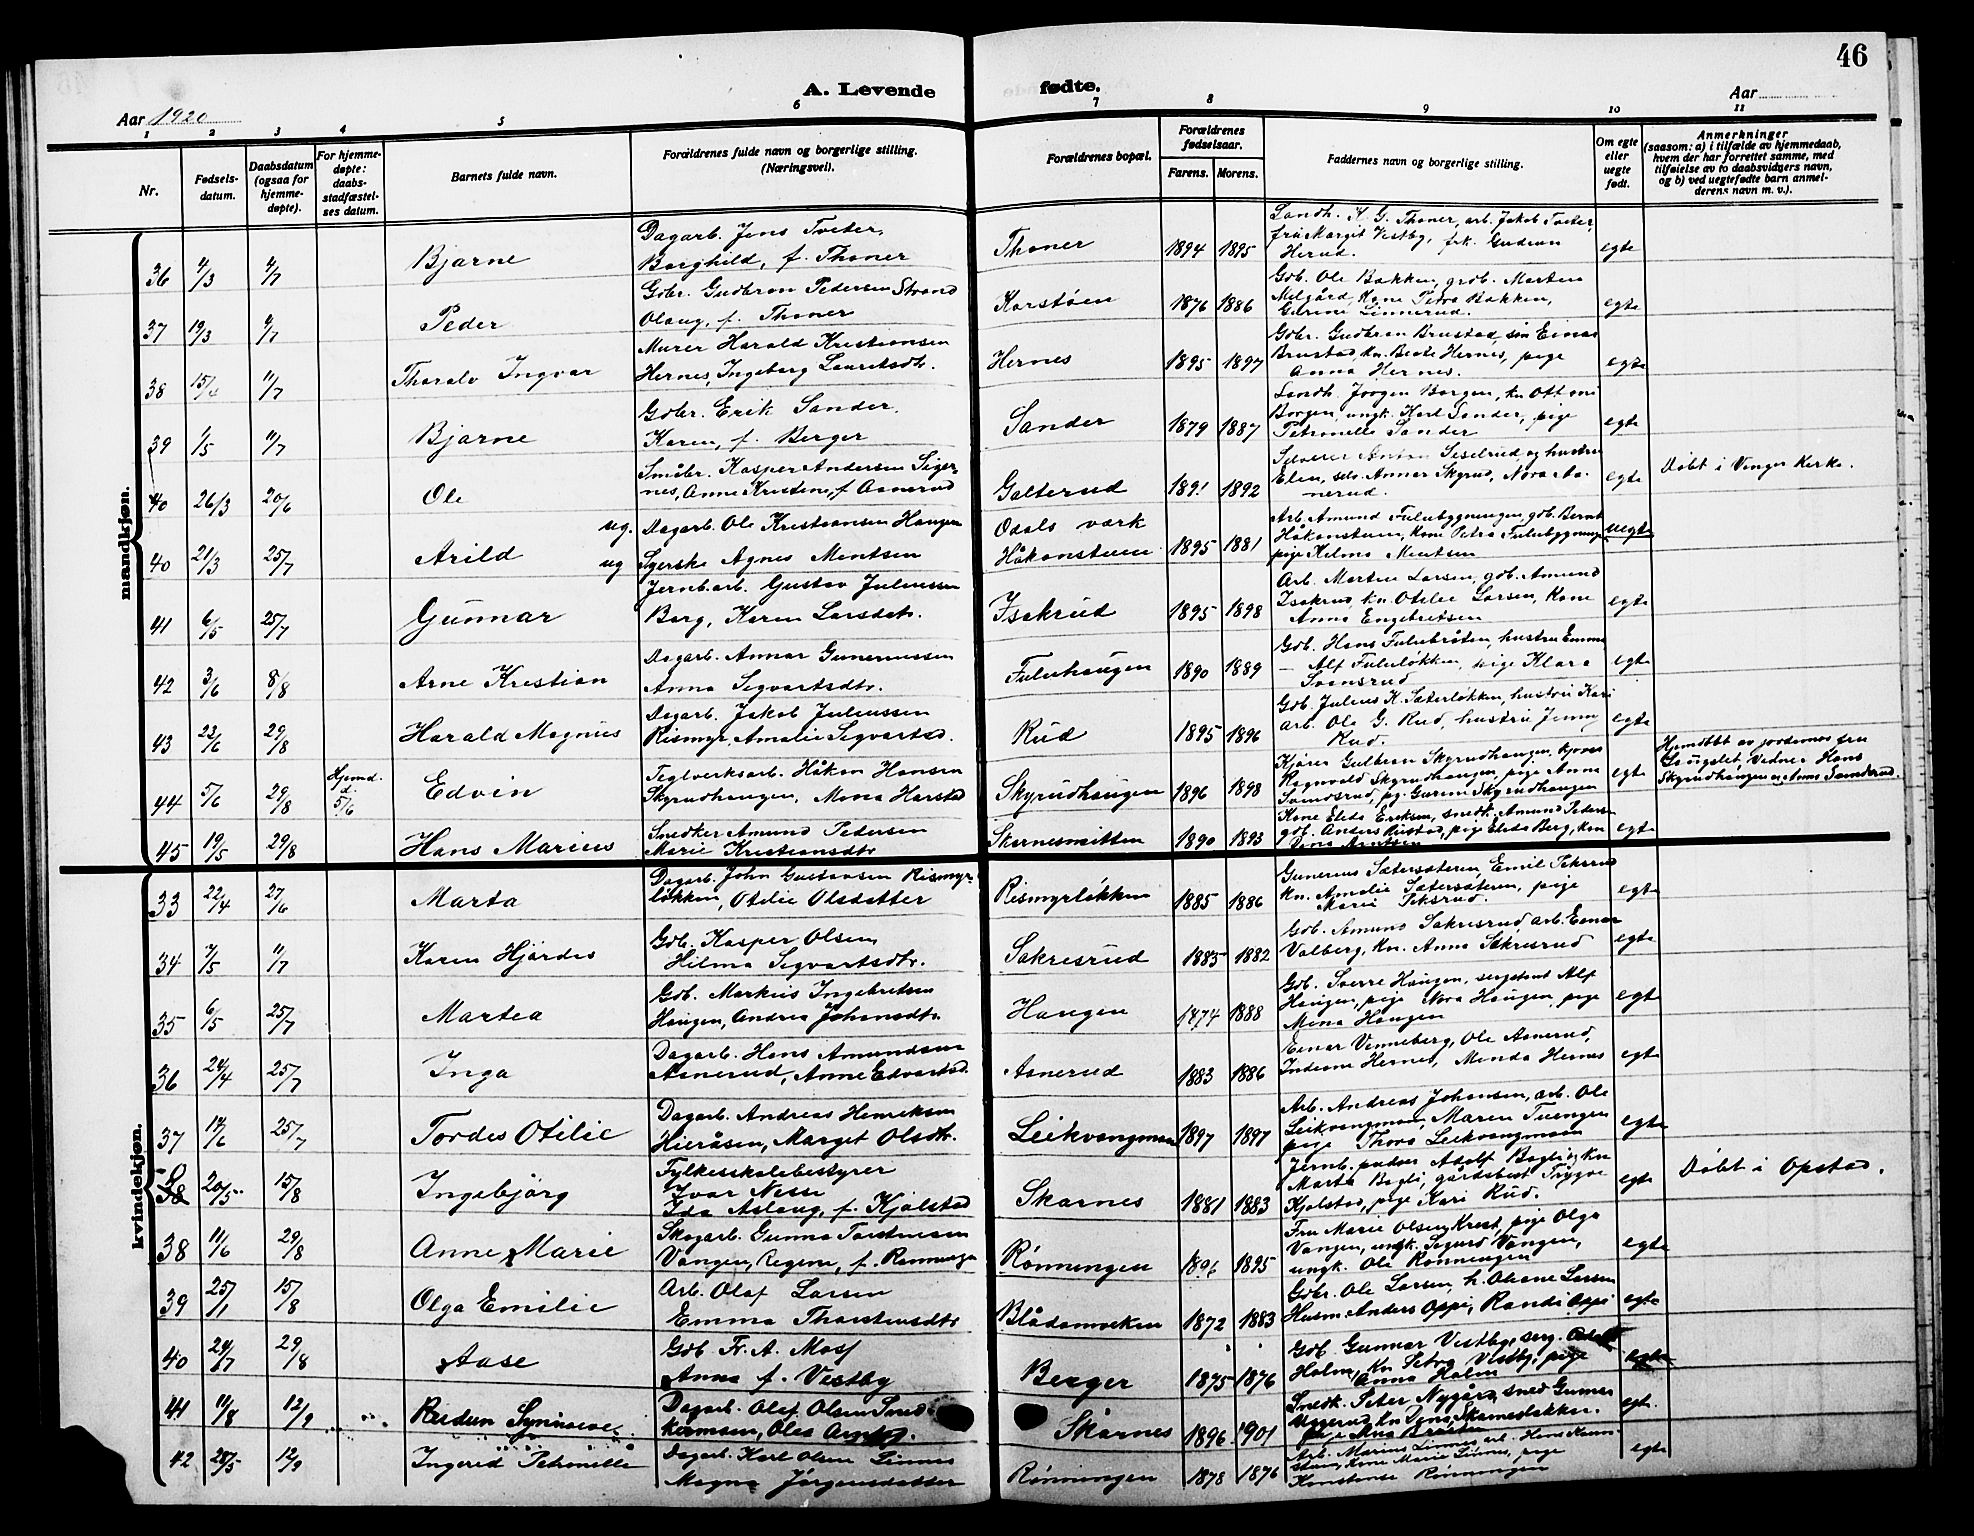 46
A. Levende fødte.
Aar 1920
Aar
1 2 3 4 5 6 7 8 9 10 11
Nr.
Fødsels-
datum.
Daabsdatum
(ogsaa for
hjemme-
døpte).
For hjemme-
døpte:
daabs-
stadfæstel-
ses datum.
Barnets fulde navn.
Forældrenes fulde navn og borgerlige stilling.
(Næringsvei).
Forældrenes bopæl.
Forældrenes
fødselsaar.
Farens. Morens.
Faddernes navn og borgerlige stilling.
Om egte
eller
uegte
født.
Anmerkninger
(saasom: a) i tilfælde av hjemmedaab,
hvem der har forrettet samme, med
tilføielse av to daabsvidners navn,
og b) ved uegtefødte barn anmel-
derens navn m. v.).
mandkjøn.
36 4/3 4/7 Bjarne
Dagarb. Jens Tveter,
Borghild, f. Thoner
Thoner 1894 1895
Landh. K. G. Thoner, arb. Jakob Tveter,
fru Margit Vestby, frk. Gudrun
Herud.
egte
37 19/3 4/7 Peder
Gbr. Gudbran Pedersen Strand
Olaug, f. Thoner
Korstøen 1876 1886
Gdb. Ole Bakken, grdb. Marten
Melgård, Kone Petra Bakken,
Linnerud.
egte
38 15/4 11/7 Thoralv Ingvar
Murer Harald Kristiansen
Hernes, Ingeborg Lauritsdtr.
Hernes 1895 1897
Gdbr. Gudbran Brustad, sön Einar
Brustad, kn. Beate Hernes, pige
Anna Hernes.
egte
39 1/5 11/7 Bjarne
Gdbr. Erik Sander.
Karen, f. Berger
Sander 1879 1887
Landh. Jørgen Borgen, kn
Borgen, ungk. Karl Sander, pige
Petronelle Sander
egte
40 26/3 20/6 Ole
Småbr. Kasper Andersen Siger-
nes, Anne Kristine, f. Aanerud
Galterud 1891 1892
Seselrud, og hustru
Elen, selv. Annar Skyrud, Nora Aa-
nerud.
egte
Döbt i Vinger Kirke.
40 21/3 25/7 Arild
ug. Dagarb. Ole Kristiansen Haugen
ug Syerske Agnes Mentsen
Odals værk
Håkonstuen 1895 1881
Arb. Amund Fulubygningen, gdb. Bernt
Håkonstuen, Kone Petra Fulubygningen
pige Helma Mentsen
uegte
41 6/5 25/7 Gunnar
Jernb.arb. Gustav Juliussen
Berg, Karen Larsdtr.
Isakrud 1895 1898
Arb. Martin Larsen, gdb. Amund
Isakrud, kn. Otilie Larsen, Kone
Anna Engebretsen
egte
42 3/6 8/8 Arne Kristian
Dagarb. Annar Guneriussen
Anna Sigvartsdtr.
Fuluhaugen 1890 1889
Gdb. Hans Fulubråten, hustru Emma
– Alf Fululøkken, pige Klara
Svensrud
egte
43 22/6 29/8 Harald Magnus
Dagarb. Jakob Juliussen
Rismyr, Amalie Sigvartsd.
Rud 1895 1896
Gdb. Julius K. Sæterløkken, hustru Kari
arb. Ole G. Rud, hustru Jenny
Rud.
egte
44 5/6 29/8 Hjemd.
d.
5/6 Edvin
Teglverksarb. Håkon Hansen
Skyrudhaugen, Mona Harstad
Skyrudhaugen 1896 1898
Kjører Gulbran Skyrudhaugen, kjører
Ragnvald Skyrudhaugen, pige Anna
Sandsrud, pg. Gurine Skyrudhaugen
egte
Hjemdöbt av jordemor fru
Gaugslet, Vidner Hans
Skyrudhaugen og Anna Sanderud.
45 19/5 29/8 Hans Marius
Snedker Amund Pedersen
Marie Kristiansdtr
Skarnesmitten 1890 1893
Kone Elida Eriksen, snedk. Amund Pedersen
gdb. Anders Rustad, pige Elida Berg, kone
egte
kvindekjøn.
33 22/4 27/6 Marta
Dagarb. John Gustavsen Rismyr-
løkken, Otilie Olsdatter
Rismyrløkken 1885 1886
Gunerius Sætersæteren, Emil Piksrud
kn. Amalie Sætersæteren, pige
Marie Piksrud.
egte
34 7/5 11/7 Karen Hjørdis
Gdb. Kasper Olsen
Hilma Sigvartsdtr.
Sakrisrud 1885 1882
Gdb. Amund Sakrisrud, arb. Einar
Valberg, kn. Anna Sakrisrud
egte
35 6/5 25/7 Martea
Gdb. Markus Ingebretsen
Haugen, Andrea Johansdtr.
Haugen 1874 1888
Gdb. Sverre Haugen, sergeant Alf
Haugen, pige Nora Haugen, pige
Mona Haugen
egte
36 24/4 25/7 Inga
Dagarb. Hans Amundsen
Asnerud, Anne Edvartsd.
Asnerud 1883 1886
Einar Vinneberg, Ole Asnerud,
Indiane Hernes, Minda Hernes
egte
37 17/6 25/7 Tordis Otilie
Dagarb. Andreas Henriksen
Hieråsen, Marget Olsdtr.
Leikvangmoen 1897 1897
Arb. Andreas Johansen, arb. Ole
Leikvangmoen, Maren Tuengen
pige Thora Leikvangmoen
egte
38 20/5 15/8 Ingebjörg
Fylkesskolebestyrer
Ivar Nesse
Ida Aslaug, f. Kjølstad
Skarnes 1881 1883
Jernb. Adolf Bøgli og kn
Marta Bøgli, gårdsbest. Trygve
Kjølstad, pige Kari Rud.
egte
Döbt i Opstad.
38 11/6 29/8 Anne Marie
Skogarb. Gunnar Torstensen
Vangen, Regine, f. Rønningen
Rønningen 1896 1895
Fru Marie Olsen Krest, pige Olga
Vangen, ungk. Sigurd Vangen,
ungk. Ole Rønningen
egte
39 25/1 15/8 Olga Emilie
Arb. Olaf Larsen
Emma Thorstensdtr
Blådammoken 1872 1883
Gdbr. Ole Larsen, h. Oliane Larsen
Husm. Anders Oppi, Randi Oppi
egte
40 24/7 29/8 Aase
Gdb Fr. A. Moss
Anna f. Vestby
Berger 1875 1876
Gdb. Gunnar Vestby, serg.
Holm, kn Petra Vestby, pige
Anna Holm
egte
41 11/8 12/9 Reidun Synnøve
Dagarb. Olaf Olsen Sned
Skarnes 1896 1901
Snedk. Peter Nygård, sned Gunnar
egt.
42 28/5 12/9 Ingerid Petronille
Dagarb. Karl Olsen Linnes
Magna Jörgensdatter
Rønningen 1878 1876
Arb. Marius Linnes, arb. Hans
Kone Marie Linnes, pige
Konstanse Rønningen
egte